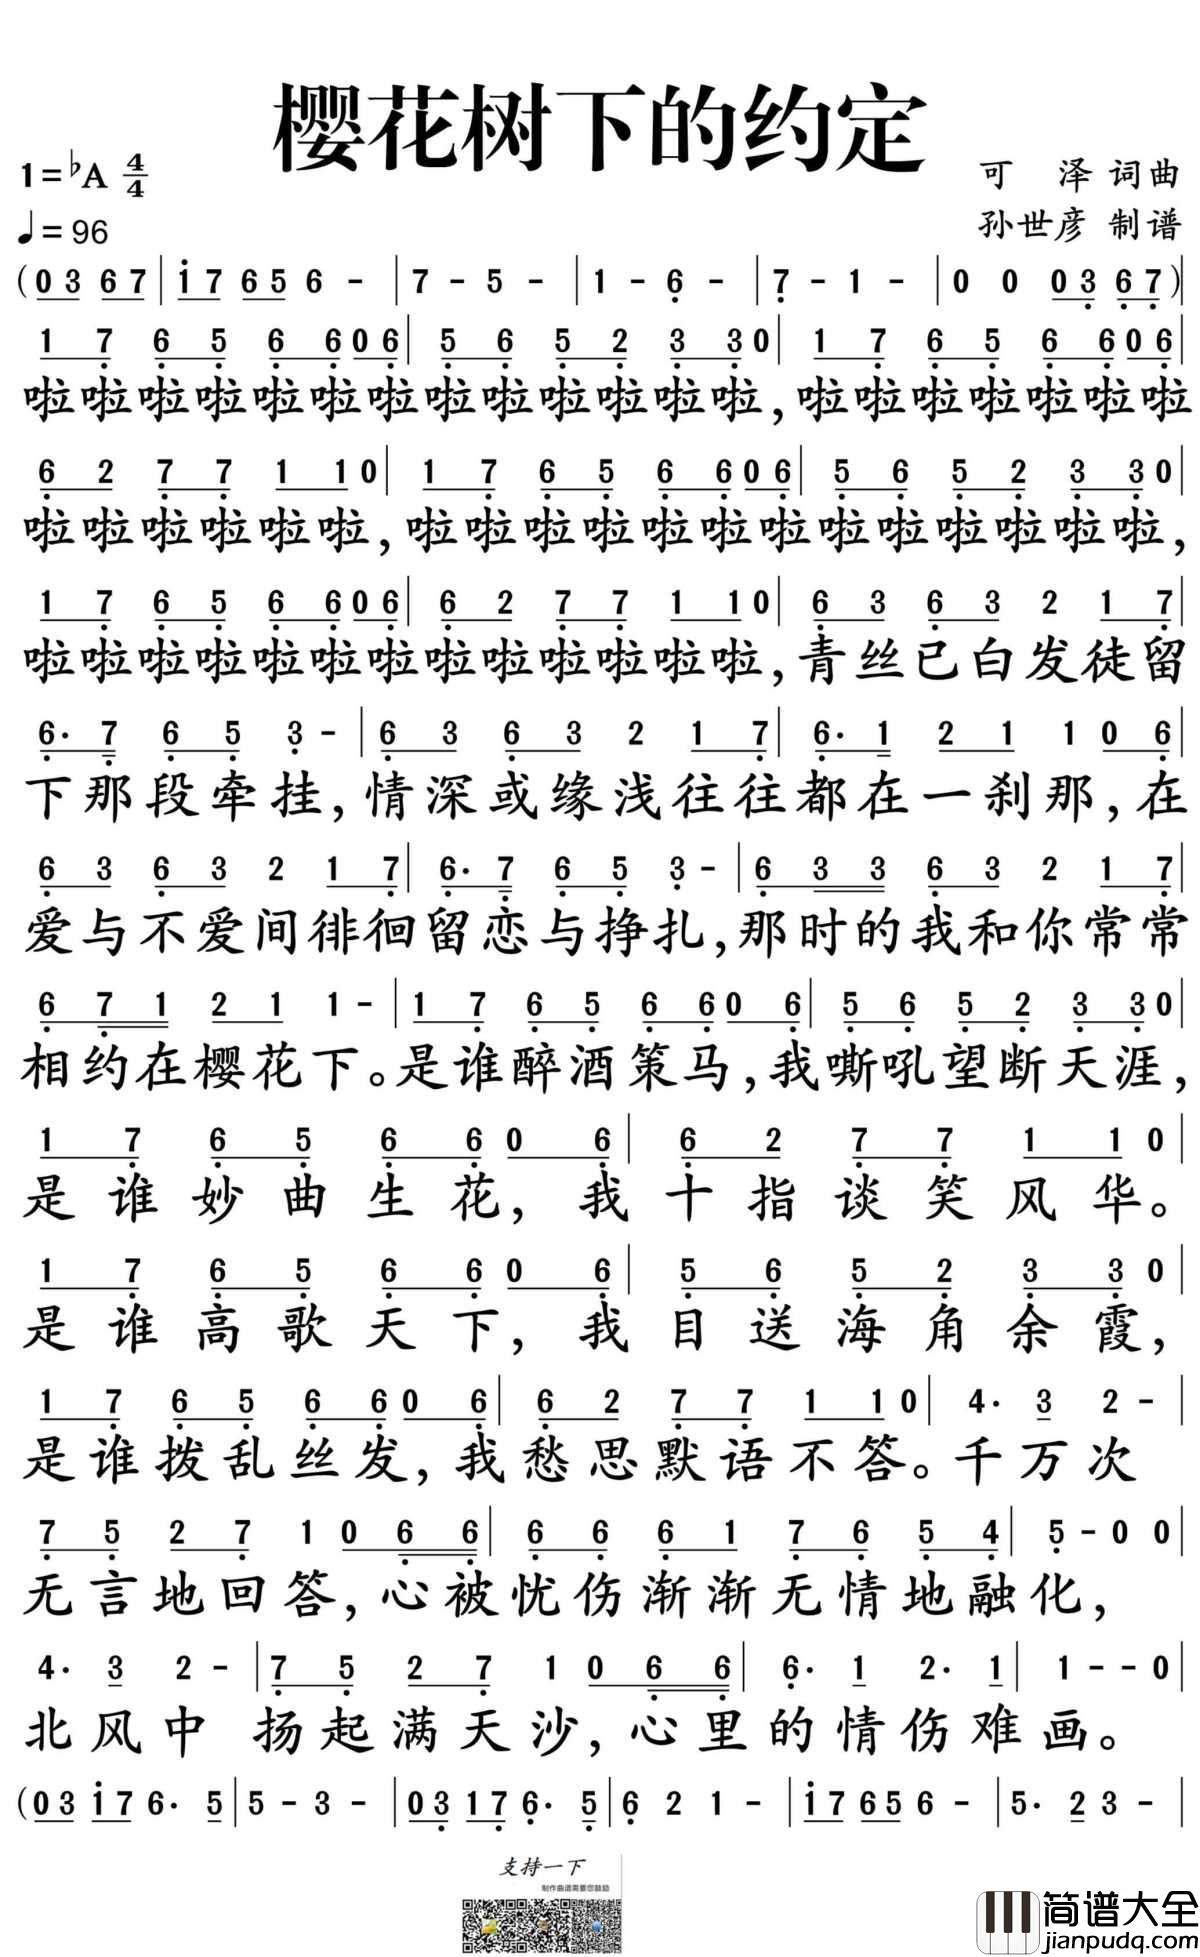 樱花树下的约定
1=♭A 4/4
可 泽 词曲
♩=96
孙世彦 制谱
(0 3 6 7 | i 7 6 5 6 - | 7 - 5 - | 1 - 6 - | 7 - 1 - | 0 0 0 3 6 7)
1 7 6 5 6 6 0 6 | 5 6 5 2 3 3 0 | 1 7 6 5 6 6 0 6 |
啦啦啦啦啦啦啦啦啦啦啦啦啦,啦啦啦啦啦啦啦
6 2 7 7 1 1 0 | 1 7 6 5 6 6 0 6 | 5 6 5 2 3 3 0 |
啦啦啦啦啦啦,啦啦啦啦啦啦啦啦啦啦啦啦啦,
1 7 6 5 6 6 0 6 | 6 2 7 7 1 1 0 | 6 3 6 3 2 1 7 |
啦啦啦啦啦啦啦啦啦啦啦啦啦,青丝已白发徒留
6· 7 6 5 3 - | 6 3 6 3 2 1 7 | 6· 1 2 1 1 0 6 |
下那段牵挂,情深或缘浅往往都在一刹那,在
6 3 6 3 2 1 7 | 6· 7 6 5 3 - | 6 3 3 6 3 2 1 7 |
爱与不爱间徘徊留恋与挣扎,那时的我和你常常
6 7 1 2 1 1 - | 1 7 6 5 6 6 0 6 | 5 6 5 2 3 3 0 |
相约在樱花下。是谁醉酒策马,我嘶吼望断天涯,
1 7 6 5 6 6 0 6 | 6 2 7 7 1 1 0 |
是谁妙曲生花,我十指谈笑风华。
1 7 6 5 6 6 0 6 | 5 6 5 2 3 3 0 |
是谁高歌天下,我目送海角余霞,
1 7 6 5 6 6 0 6 | 6 2 7 7 1 1 0 | 4· 3 2 - |
是谁拨乱丝发,我愁思默语不答。千万次
7 5 2 7 1 0 6 6 | 6 6 6 1 7 6 5 4 | 5 - 0 0 |
无言地回答,心被忧伤渐渐无情地融化,
4· 3 2 - | 7 5 2 7 1 0 6 6 | 6· 1 2· 1 | 1 - - 0 |
北风中 扬起满天沙,心里的情伤难画。
(0 3 i 7 6· 5 | 5 - 3 - | 0 3 1 7 6· 5 | 6 2 1 - | i 7 6 5 6 - | 5· 2 3 - |
支持一下
制作曲谱需要您鼓励
简谱大全
jianpudq.com